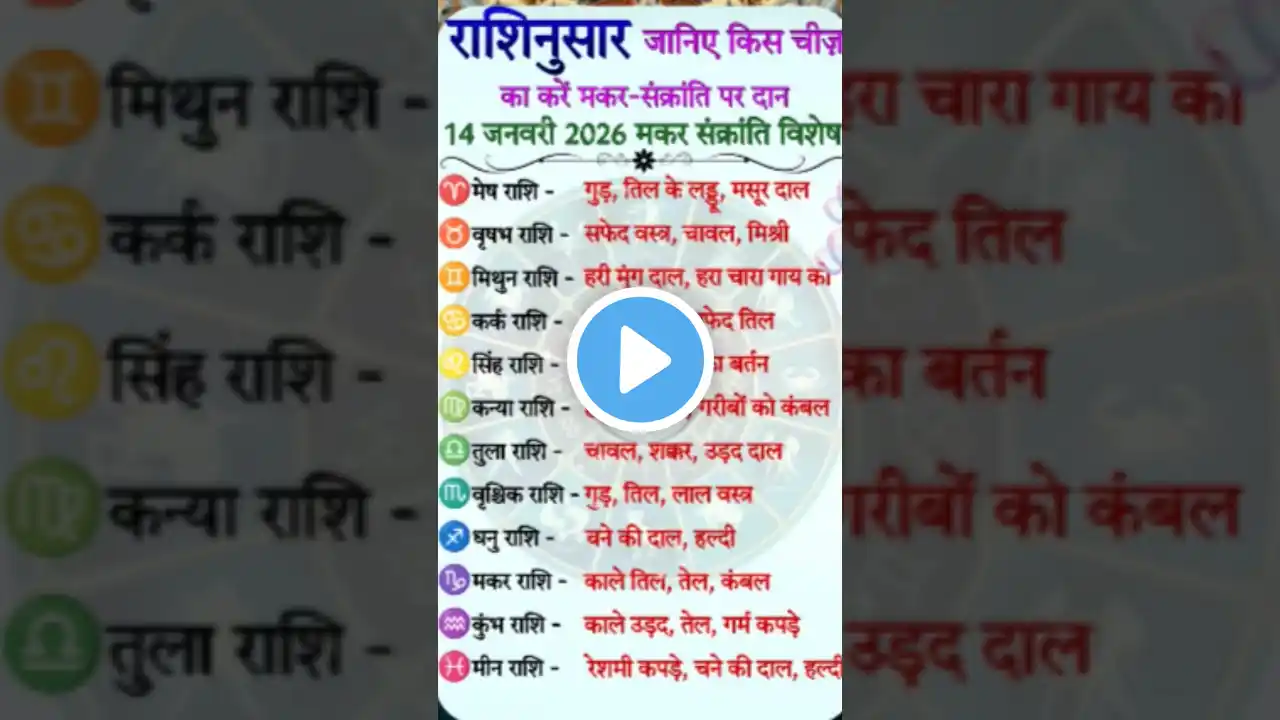 राशिनुसार जानिए किस चीज़
का करें मकर-संक्रांति पर दान
14 जनवरी 2026 मकर संक्रांति विशेष
मेष राशि - गुड़, तिल के लड्डू, मसूर दाल
वृषभ राशि - सफेद वस्त्र, चावल, मिश्री
मिथुन राशि - हरी मूंग दाल, हरा चारा गाय को
कर्क राशि - तिल
सिंह राशि - बर्तन
कन्या राशि - गरीबों को कंबल
तुला राशि - चावल, शक्कर, उड़द दाल
वृश्चिक राशि - गुड़, तिल, लाल वस्त्र
धनु राशि - चने की दाल, हल्दी
मकर राशि - काले तिल, तेल, कंबल
कुंभ राशि - काले उड़द, तेल, गर्म कपड़े
मीन राशि - रेशमी कपड़े, चने की दाल, हल्दी